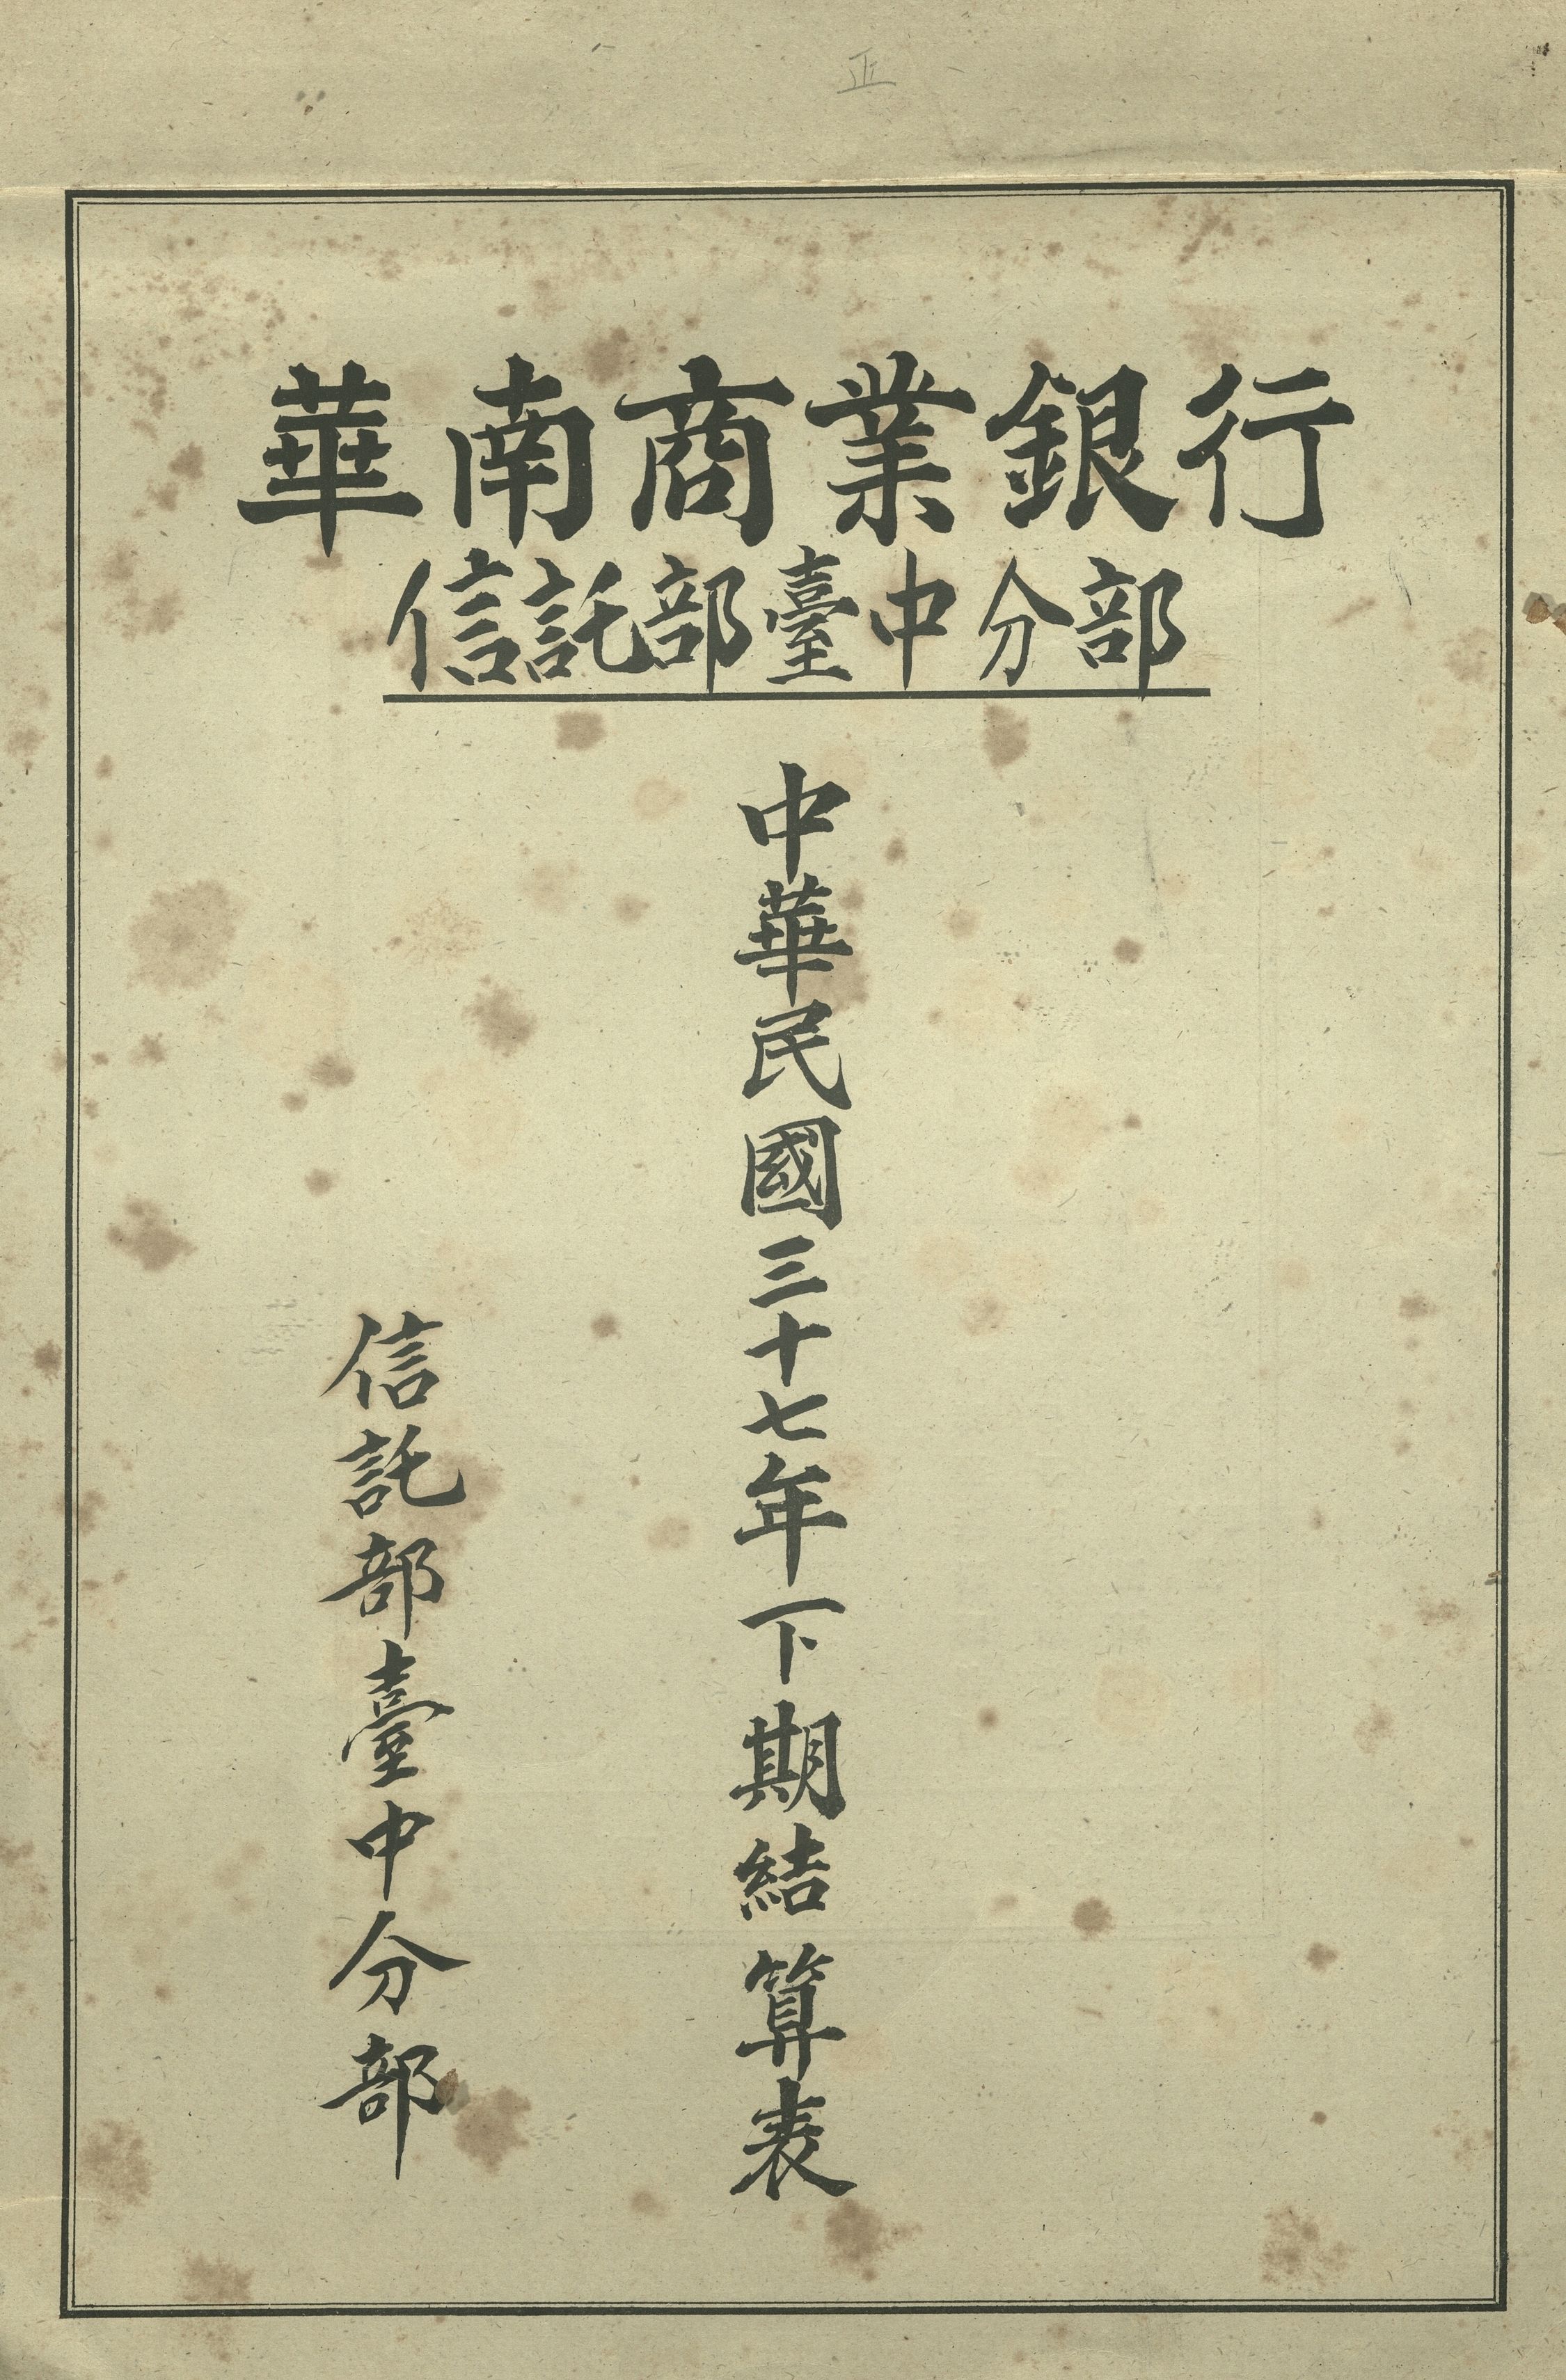 正
華南商業銀行
信託部臺中分部
中華民國三十七年下期結算表
信託部臺中分部